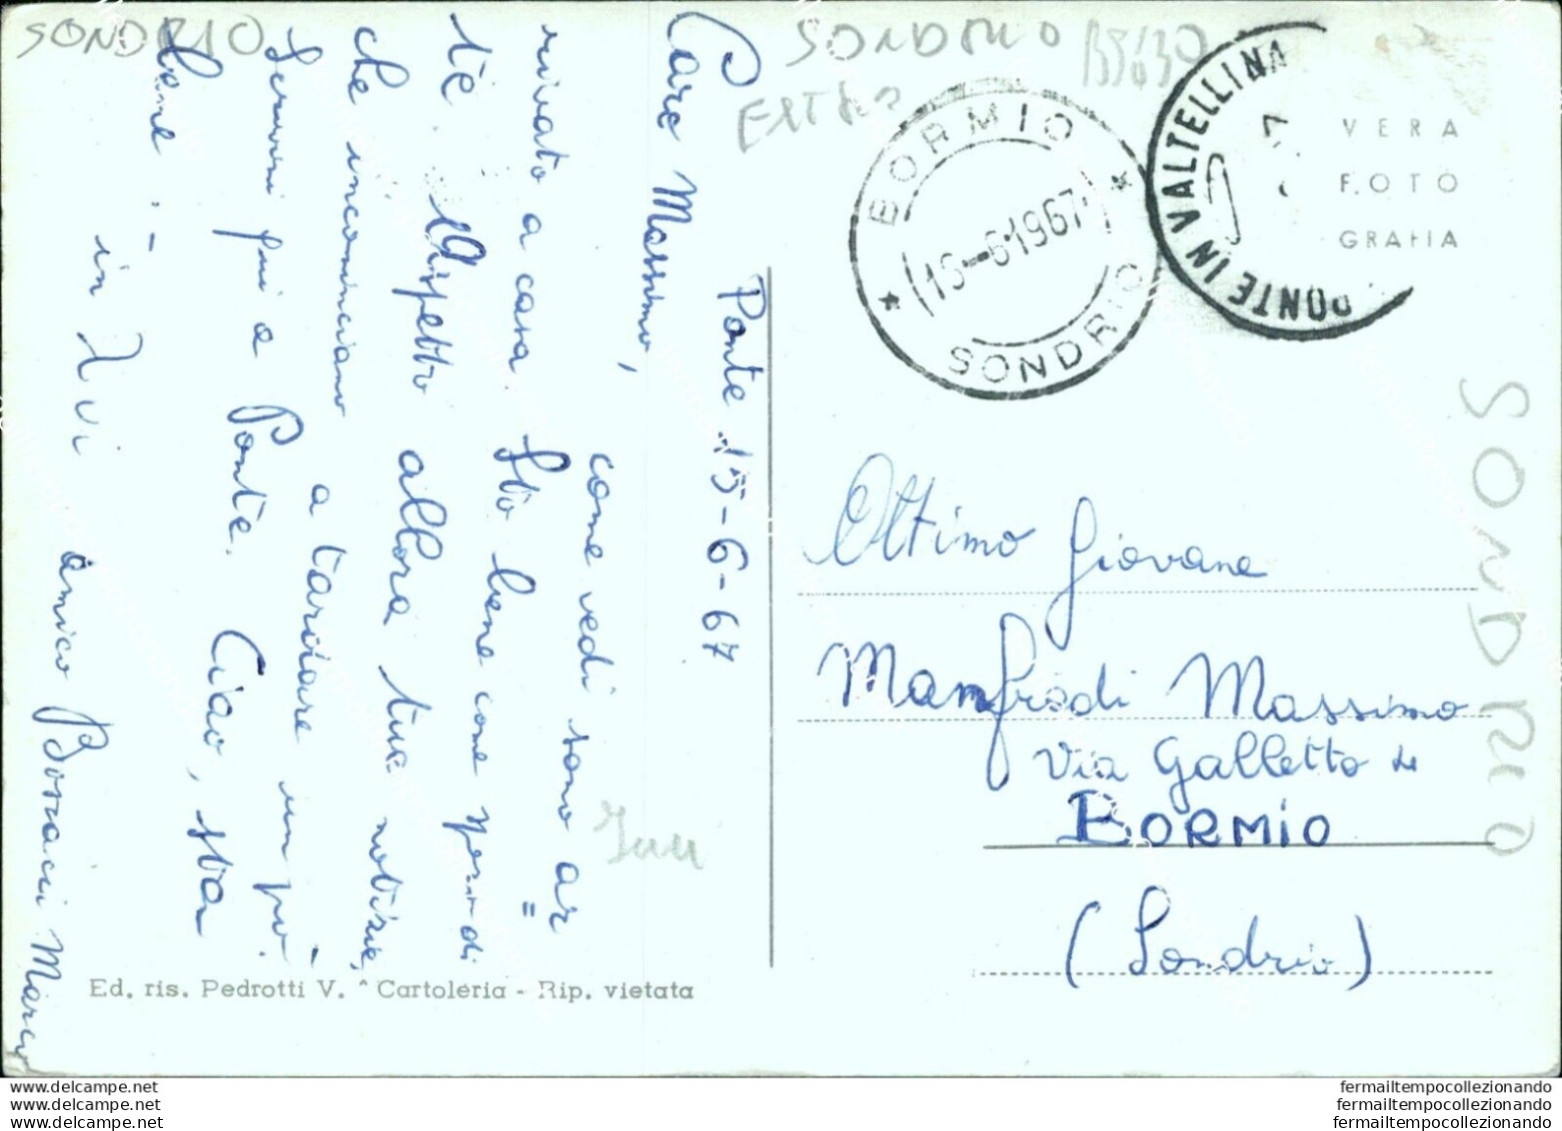 SONDRIO
SONDRIO
B5630
Ponte 15-6-67
Caro Massimo,
come vedi sono ar
=
rivato a casa. Sto bene come spero di
te. Aspetto allora tue notizie,
che incominciano a tardare un pò.
Scrivimi qui a Ponte. Ciao, sta
bene. -
in
amico Marco
Ed. ris. Pedrotti V. - Cartoleria - Rip. vietata
BORMIO
* (16-6-1967) *
SONDRIO
PONTE IN VALTELLINA
VERA
FOTO
GRAFIA
Ottimo giovane
Manfrodi Massimo
Via Galletto 4
BORMIO
(Sondrio)
SONDRIO
delcampe.net
www.delcampe.net
www.delcampe.net
fermailtempocollezionando
fermailtempocollezionando
fermailtempocollezionando